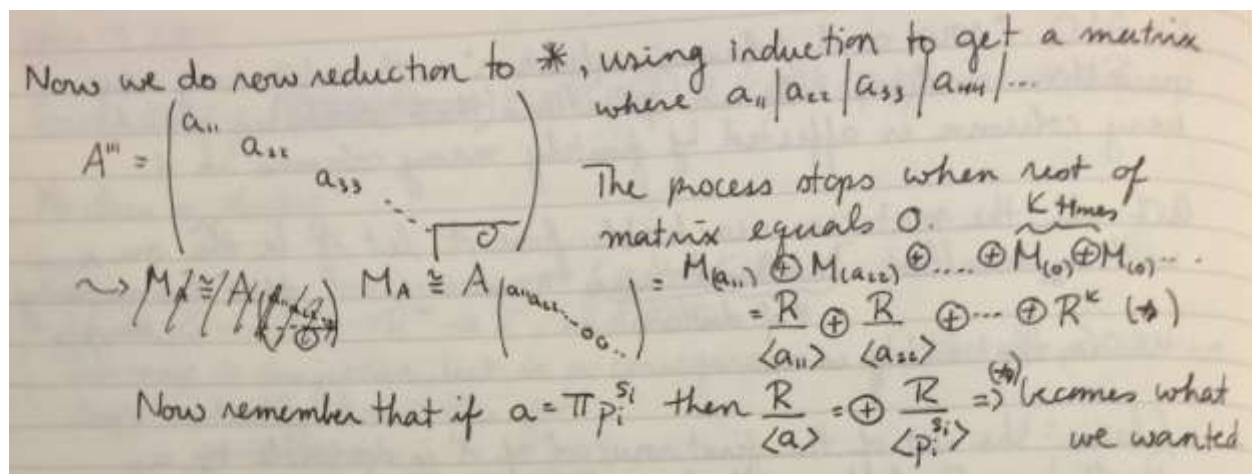 Now we do row reduction to *, using induction to get a matrix
where a₁₁|a₂₂|a₃₃|a₄₄|...
A''' = (a₁₁ a₂₂ a₃₃ ... 0)
The process stops when rest of
matrix equals 0.
K times
⇝ M_A ≅ A (a₁₁ a₂₂ ... 0 0 ...) = M₍a₁₁₎ ⊕ M₍a₂₂₎ ⊕ .... ⊕ M₍₀₎ ⊕ M₍₀₎ ...
= R/<a₁₁> ⊕ R/<a₂₂> ⊕ ... ⊕ R^K (*)
Now remember that if a = π p_i^{s_i} then R/<a> = ⊕ R/<p_i^{s_i}> ⇒ (*) becomes what
we wanted